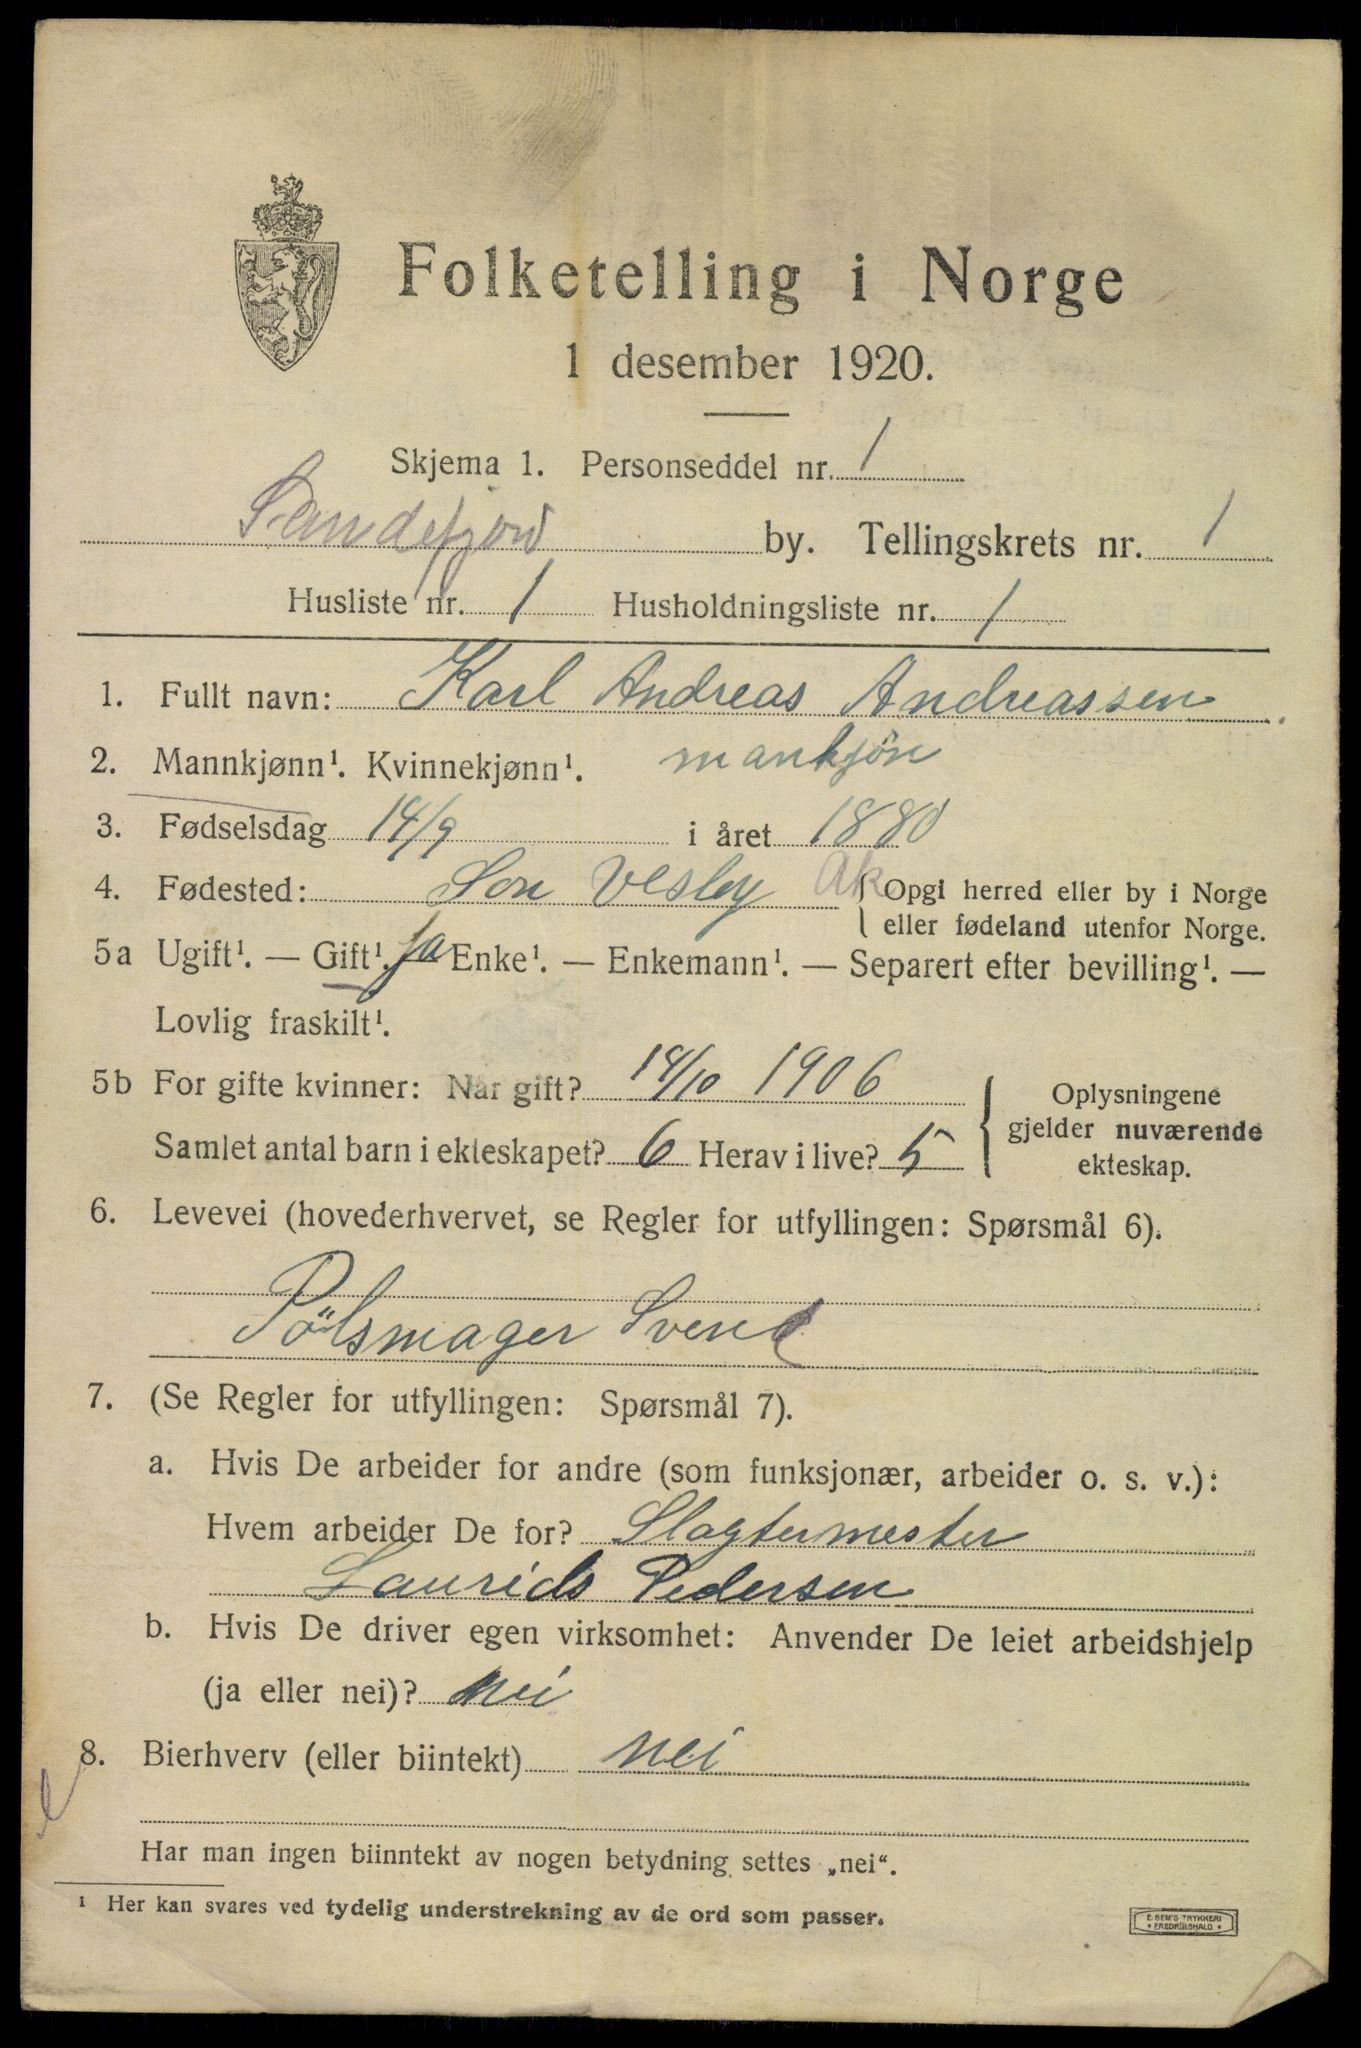 Folketelling i Norge
1 desember 1920.
Skjema 1. Personseddel nr. 1
Sandefjord by. Tellingskrets nr. 1
Husliste nr. 1 Husholdningsliste nr. 1
1. Fullt navn: Karl Andreas Andreassen
2. Mannkjønn¹. Kvinnekjønn¹. mankjön
3. Fødselsdag 14/9 i året 1880
4. Fødested: Son Vesby Ak { Opgi herred eller by i Norge
eller fødeland utenfor Norge.
5a Ugift¹. — Gift¹. ja Enke¹. — Enkemann¹. — Separert efter bevilling¹. —
Lovlig fraskilt¹.
5b For gifte kvinner: Når gift? 14/10 1906
Samlet antal barn i ekteskapet? 6 Herav i live? 5
Oplysningene
gjelder nuværende
ekteskap.
6. Levevei (hovederhvervet, se Regler for utfyllingen: Spørsmål 6).
Pölsmager Svend
7. (Se Regler for utfyllingen: Spørsmål 7).
a. Hvis De arbeider for andre (som funksjonær, arbeider o. s. v.):
Hvem arbeider De for? Slagtermester
Laurids Pedersen
b. Hvis De driver egen virksomhet: Anvender De leiet arbeidshjelp
(ja eller nei)? nei
8. Bierhverv (eller biintekt) nei
Har man ingen biinntekt av nogen betydning settes „nei“.
¹ Her kan svares ved tydelig understrekning av de ord som passer.
E. SEM'S TRYKKERI
* FREDRIKSHALD. *